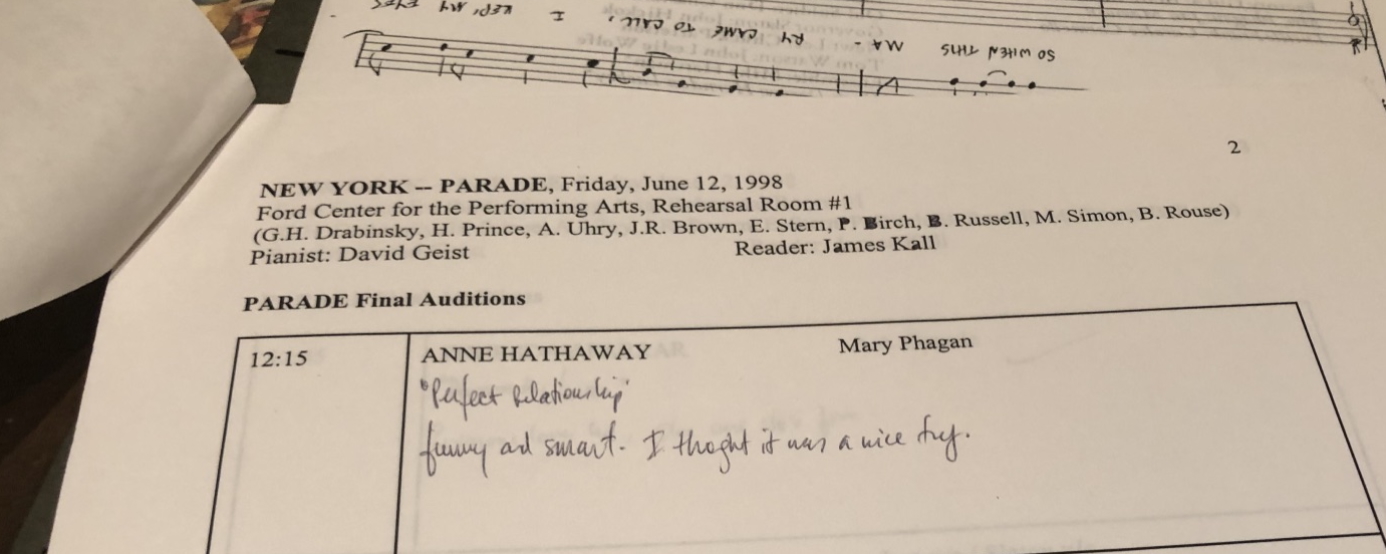 KEPT MY EYES
I
SO WHEN THIS MA - RY CAME TO CALL,
2
NEW YORK -- PARADE, Friday, June 12, 1998
Ford Center for the Performing Arts, Rehearsal Room #1
(G.H. Drabinsky, H. Prince, A. Uhry, J.R. Brown, E. Stern, P. Birch, B. Russell, M. Simon, B. Rouse)
Pianist: David Geist Reader: James Kall
PARADE Final Auditions
12:15 ANNE HATHAWAY Mary Phagan
"Perfect Relationship"
funny and smart. I thoght it was a nice try.